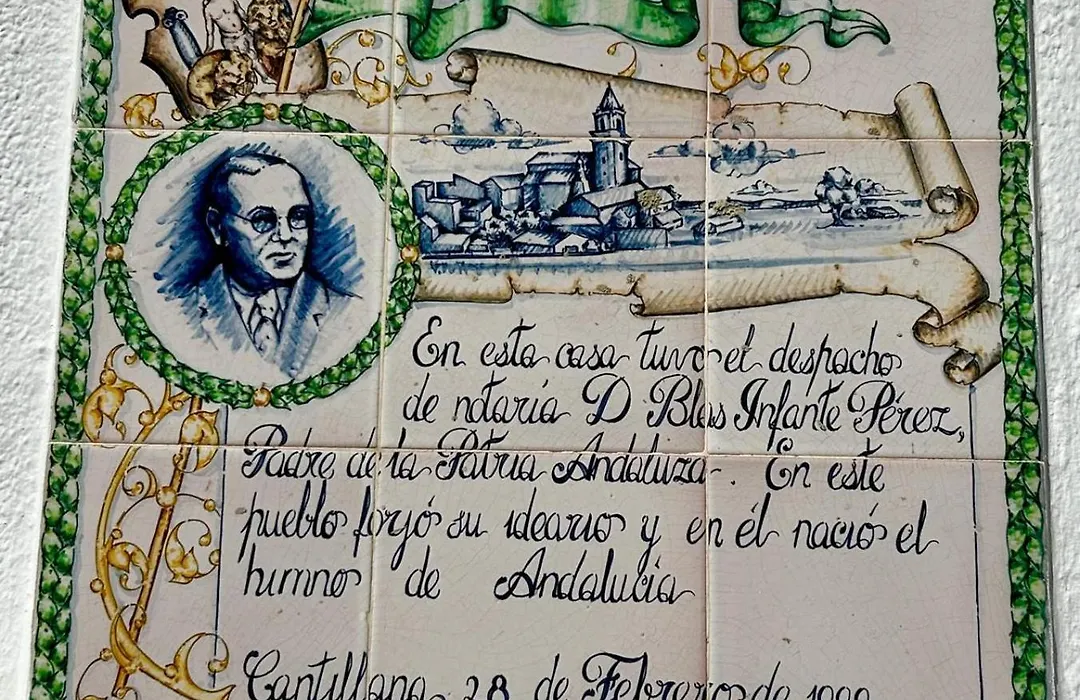 En esta casa tuvo el despacho
de notaría D Blas Infante Pérez,
Padre de la Patria Andaluza. En este
pueblo forjó su ideario y en él nació el
himno de Andalucía
Cantillana 28 de Febrero de